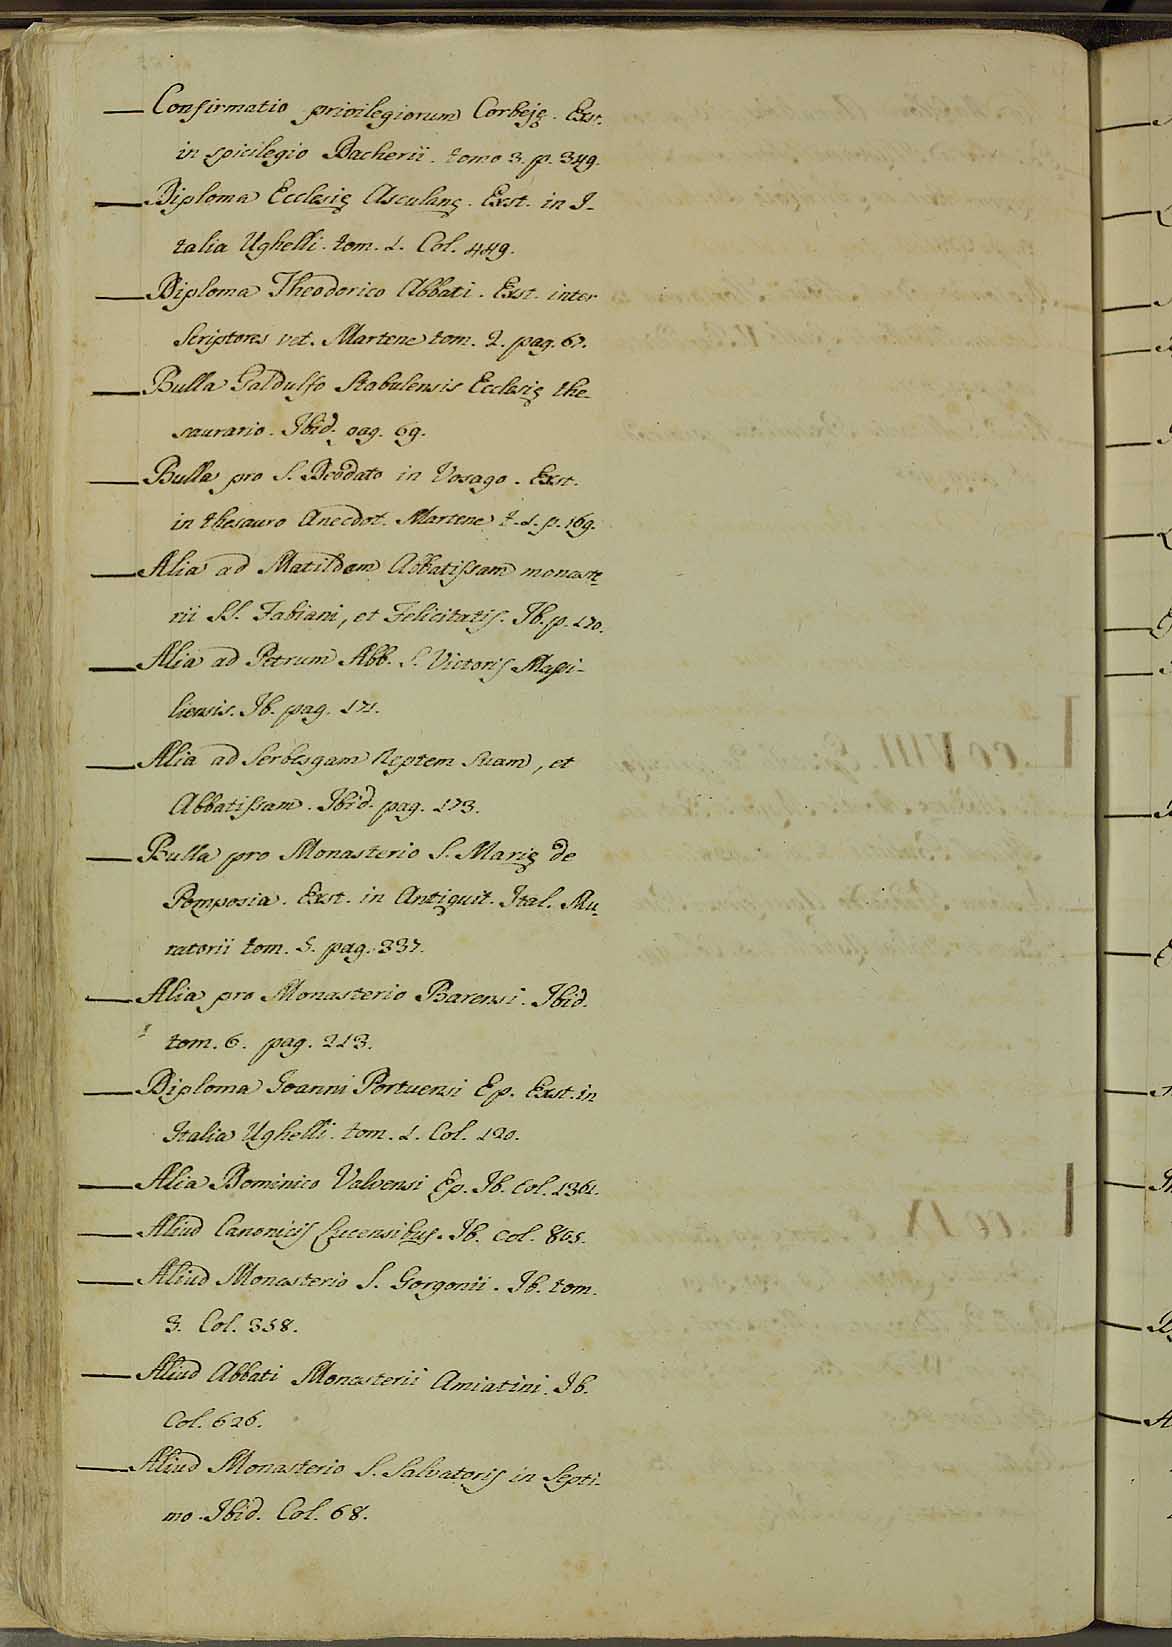 — Confirmatio privilegiorum Corbeję. Ext.
in spicilegio Dacherii. tomo 3. p. 349.
— Diploma Ecclesię Asculanę. Ext. in I-
talia Ughelli. tom. 1. Col. 449.
— Diploma Theodorico Abbati. Ext. inter
Scriptores vet. Martene tom. 2. pag. 67.
— Bulla Galdulfo Stabulensis Ecclesię the-
saurario. Ibid. pag. 69.
— Bulla pro S. Deodato in Vosago. Ext.
in thesauro Anecdot. Martene t. 1. p. 169.
— Alia ad Matildam Abbatissam monaste-
rii SS. Fabiani, et Felicitatis. Ib. p. 170.
— Alia ad Petrum Abb. S. Victoris Massi-
liensis. Ib. pag. 171.
— Alia ad Serbesgam Neptem suam, et
Abbatissam. Ibid. pag. 173.
— Bulla pro Monasterio S. Marię de
Pomposia. Ext. in Antiquit. Ital. Mu-
ratorii tom. 5. pag. 337.
— Alia pro Monasterio Barensi. Ibid.
tom. 6. pag. 213.
— Diploma Joanni Portuensi Ep. Ext. in
Italia Ughelli. tom. 1. Col. 120.
— Alia Dominico Valvensi Ep. Ib. Col. 1361.
— Aliud Canonicis Lucensibus. Ib. Col. 865.
— Aliud Monasterio S. Gorgonii. Ib. tom.
3. Col. 358.
— Aliud Abbati Monasterii Amiatini. Ib.
Col. 626.
— Aliud Monasterio S. Salvatoris in Septi-
mo. Ibid. Col. 68.